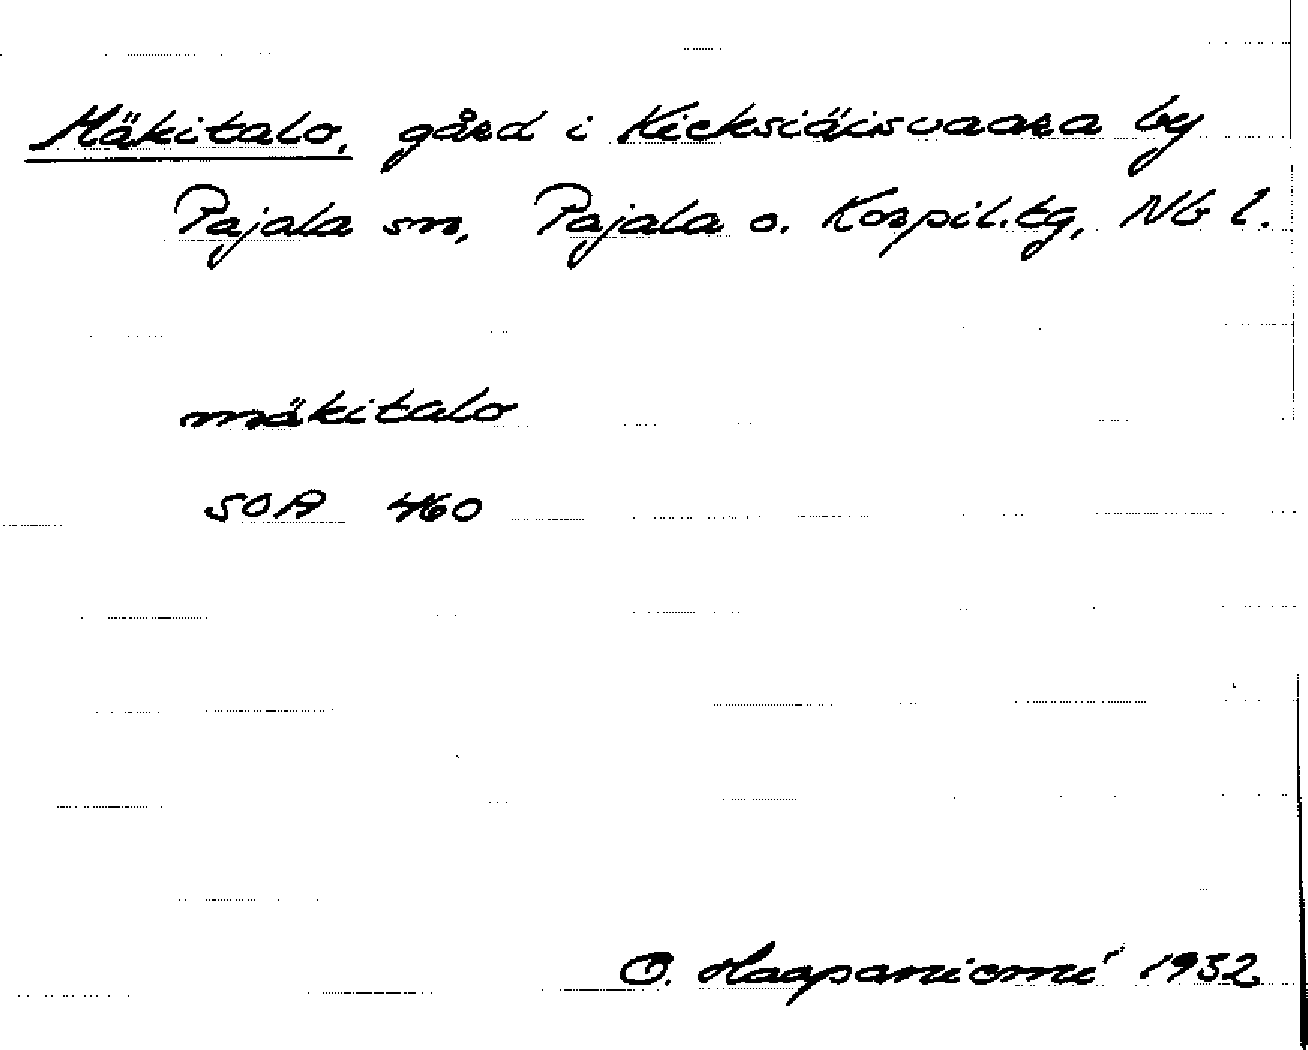 Mäkitalo, gård i Kieksiäisvaara by
Pajala sn, Pajala o. Korpil.tg, Nb l.
mäkitalo
SOA 460
O. Haapaniemi 1952